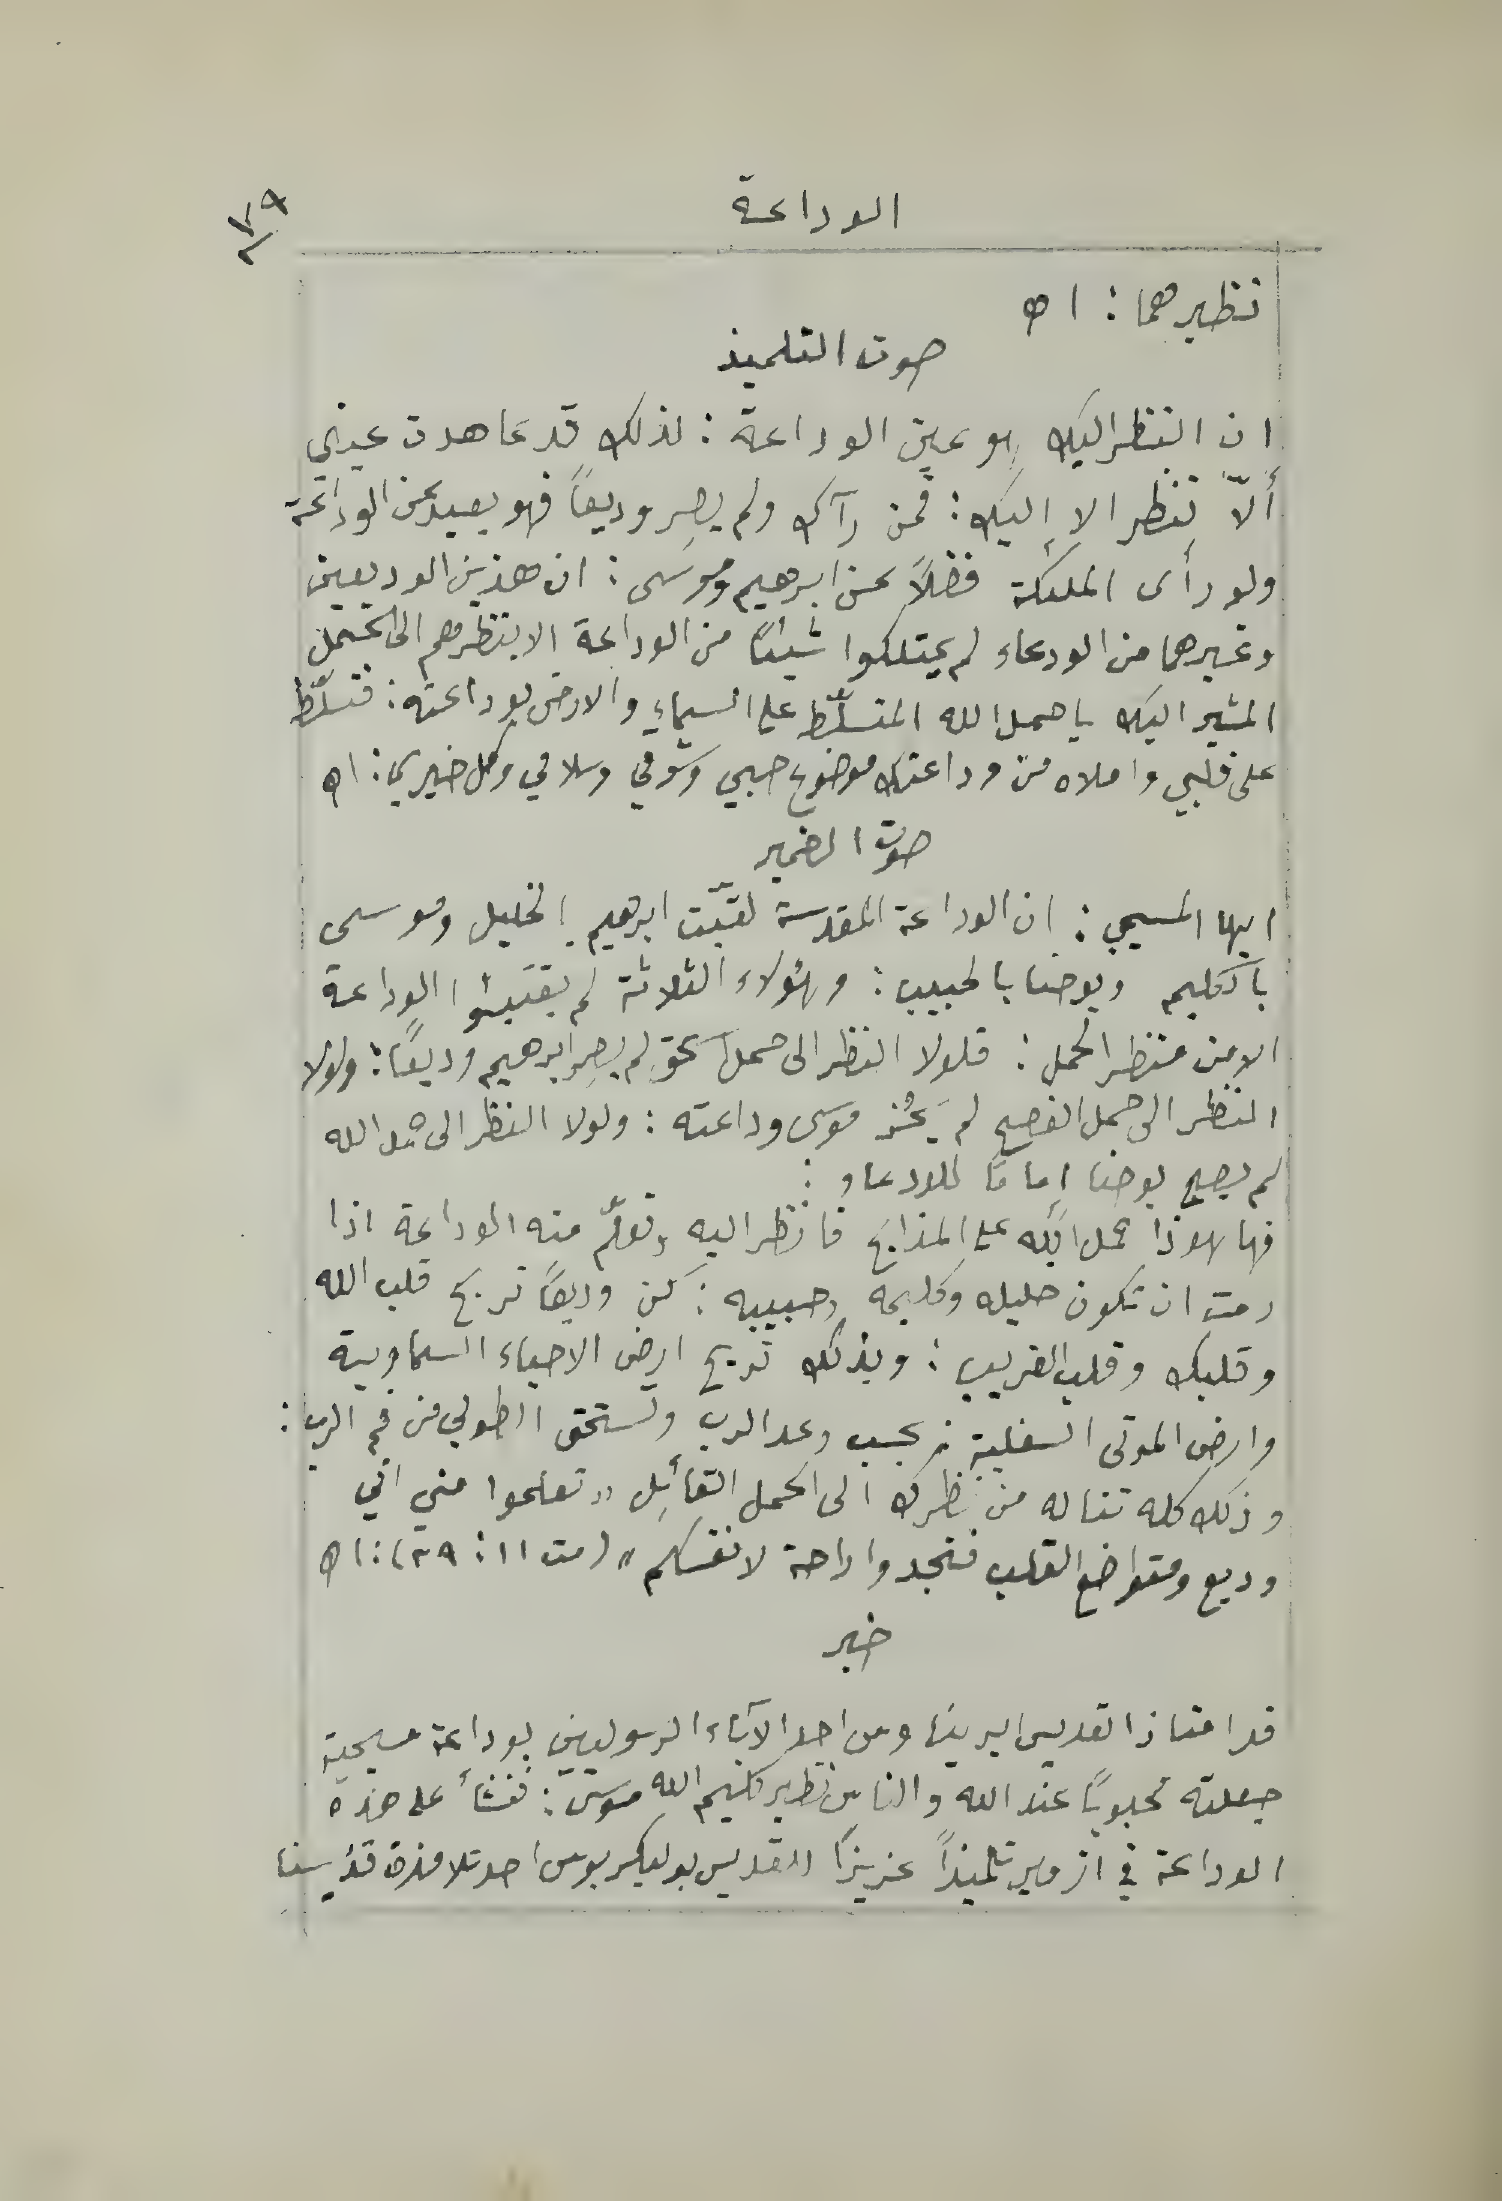 الوداعة
٧٩
نظيرهما : اه
صوت التلميذ
ان النظر اليك هو عين الوداعة : لذلك قد عاهدت عيني
ألّا تنظر الا إليك : فمن رآك ولم يصِر وديعًا فهو بعيد عن الوداعة
ولو رأى الملئكة فضلًا عن ابرهيم وموسى : ان هذين الوديعين
وغيرهما من الودعاء لم يمتلكوا شيئًا من الوداعة الا بنظرهم الى الحمل
المشير اليك يا حمل الله المتسلّط على السماء والارض بوداعته : فتسلّط
على قلبي واملاه من وداعتك موضوع حبي وشوقي وسلامي وكل خيري : اه
صوت الضمير
ايها المسيحي : ان الوداعة المقدسة لقبّت ابرهيم بالخليل وموسى
بالكليم ويوحنا بالحبيب : وهؤلاء الثلاثة لم يقتبسوا الوداعة
الا من منظر الحمل : فلولا النظر الى حمل اسحق لم يصِر ابرهيم وديعًا : ولولا
النظر الى حمل الفصح لم يَحُز موسى وداعته : ولولا النظر الى حمل الله
لم يصبح يوحنا إمامًا للودعاء :
فها هوذا حمل الله على المذابح فانظر اليه وتعلّم منه الوداعة اذا
رمت ان تكون خليله وكليمه وحبيبه : كن وديعًا تربح قلب الله
وقلبك وقلب القريب : وبذلك تربح ارض الاحياء السماوية
وارض الموتى السفلية بحسب وعد الرب وتستحق الطوبى من فم الرب :
وذلك كله تناله من نظرك الى الحمل القائِل « تعلموا مني اني
وديع ومتواضع القلب فتجدوا راحة لانفسكم » (مت ١١ : ٢٩) : اه
خبر
قد امتاز القديس ايريناوس احد الآباء الرسوليين بوداعة مسيحية
جعلته محبوبًا عند الله والناس نظير كليم الله موسى : فنشأ على هذه
الوداعة في ازمير تلميذًا عزيزًا للقديس بوليكربوس احد تلامذة قديسنا